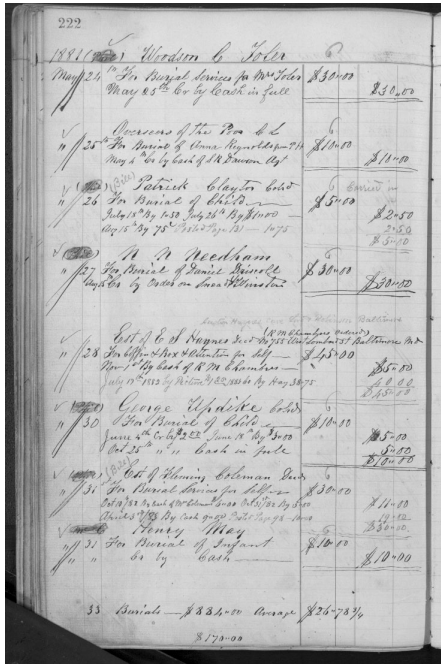 222
1882 Woodson C Toler
May 24th For Burial Services for Mrs Toler $30.00
May 25th Cr by Cash in full $30.00
Overseers of the Poor C L
" 25th For Burial of Anna Reynolds $10.00
May 4th Cr by Cash of Dawson Agt $10.00
(Bill) Patrick Claytor Cold
" 26 For Burial of Child $5.00 Carried
July 18th By 1.50 July 26th By $1.00 $2.50
Aug 15th By 75c Posted Page 131 — 1.75 2.50
$5.00
N N Needham
" 27 For Burial of Daniel Driscoll $30.00
Cr by Order on $30.00
Baltimore
Est of E S Haynes Decd (R M Chambers Ordered) Baltimore Md
" 28 For Coffin & Box & Attention for Self — $45.00
Nov 1st By Cash of R M Chambers — $5.00
July 1883 By Hay 38.75 40.00
$45.00
George Updike Cold
" 30 For Burial of Child — $10.00
June 4th Cr by $2.00 June 18th By $3.00 $5.00
Oct 25th " " Cash in full 5.00
$10.00
(Bill) Est of Fleming Coleman Decd
" 31 For Burial Services for Self $30.00
Oct 18/82 By Cash of Coleman Oct 31/82 By $11.00
April 3rd/83 By Cash 9.00 Posted Page 98 — 10.00 19.00
$30.00
Henry May
" 31 For Burial of Infant $10.00
" " Cr by Cash — $10.00
33 Burials — $884.00 Average $26.78 3/4
$170.00